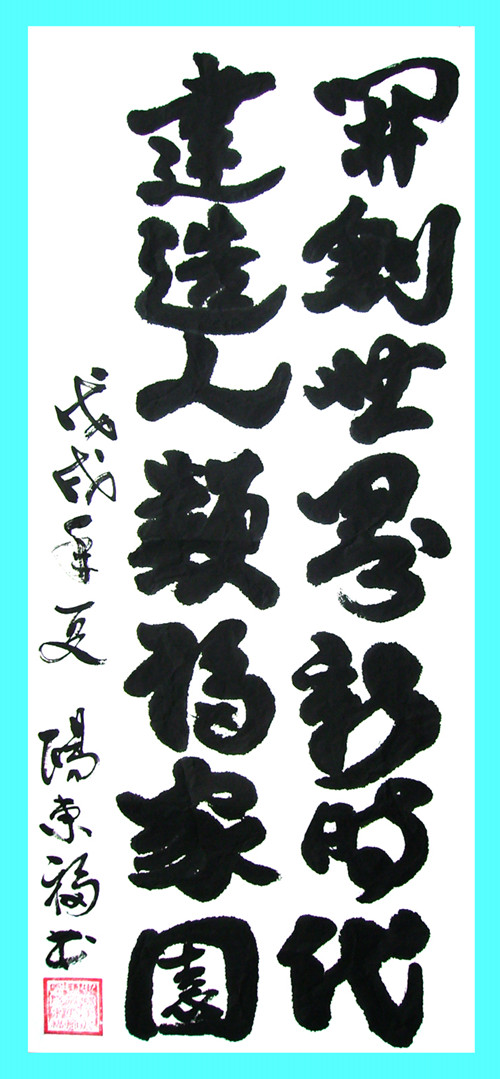 開創世界新時代
建造人類福家園
戊戌年夏 陽東福书